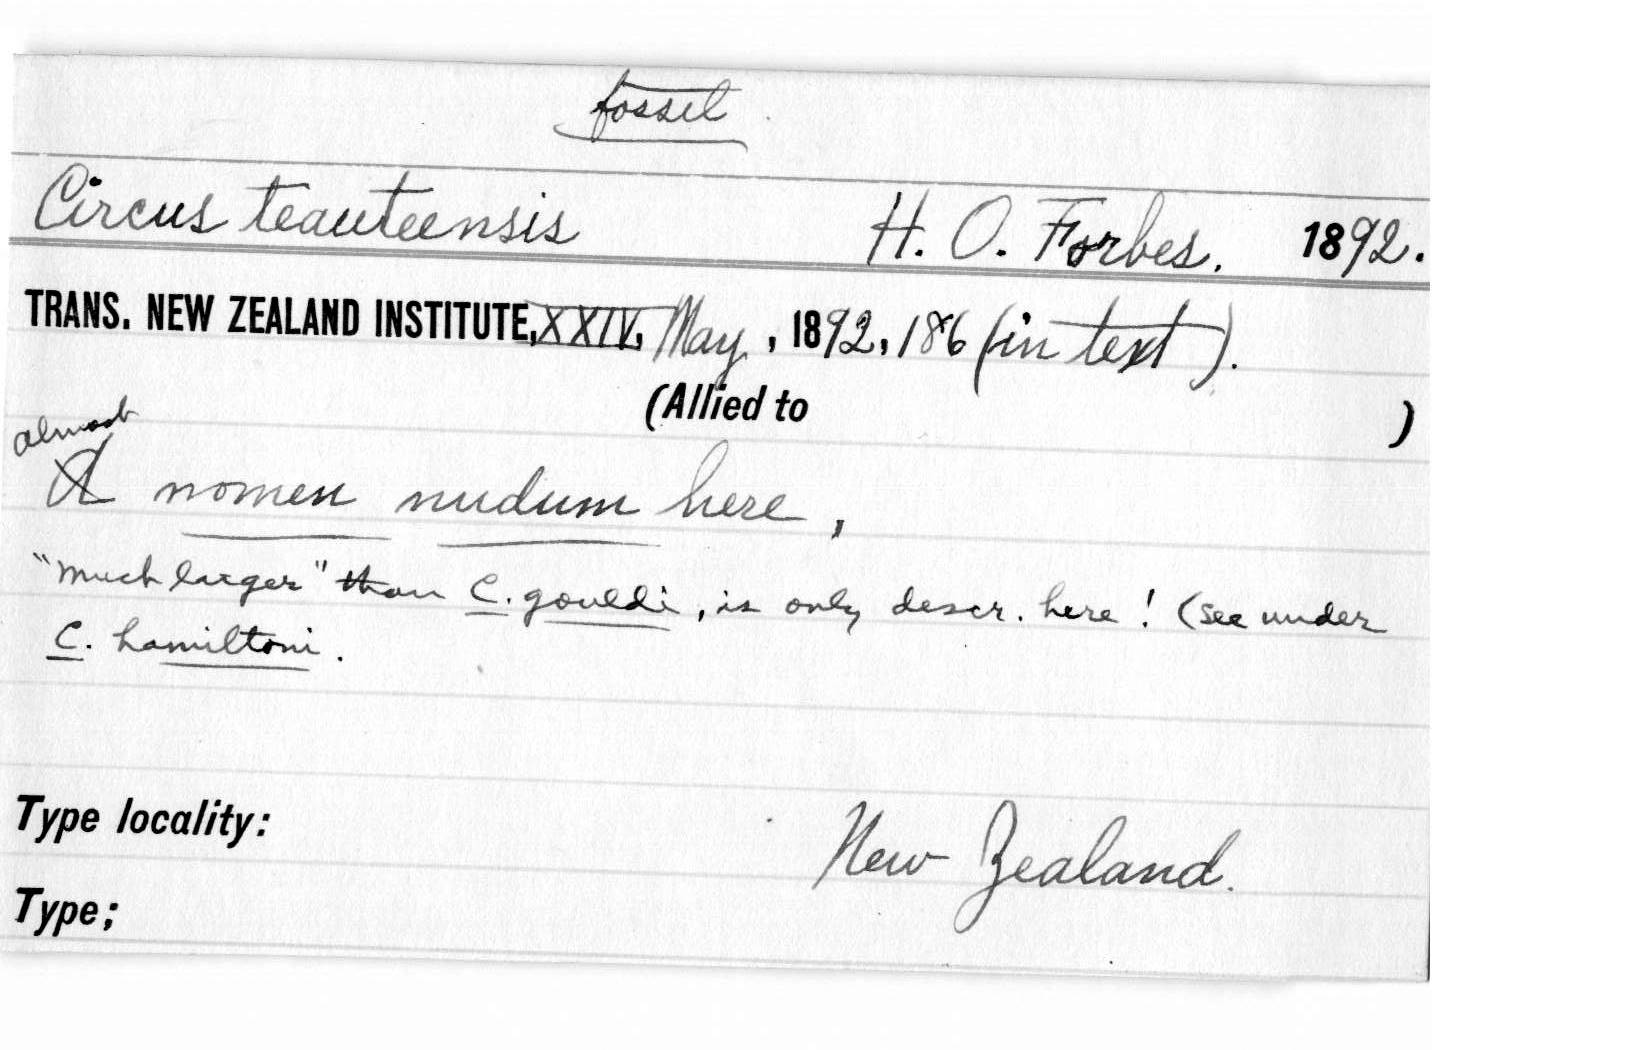 fossil
Circus teauteensis H. O. Forbes. 1892.
TRANS. NEW ZEALAND INSTITUTE, XXIV, May, 1892, 186 (in text).
(Allied to )
almost
A nomen nudum here,
"much larger" than C. gouldi, is only descr. here! (see under
C. hamiltoni.
Type locality:
New Zealand.
Type;